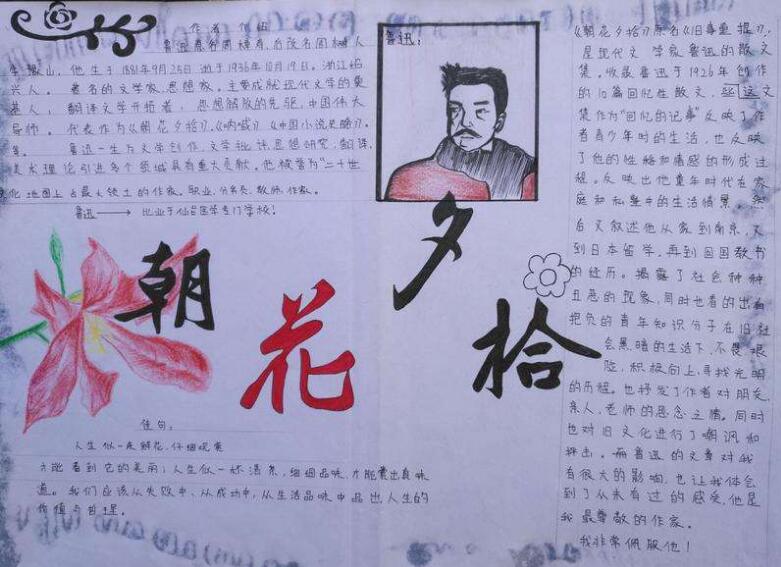 作者介绍
鲁迅原名周樟寿,后改名周树人
他生于1881年9月25日逝于1936年10月19日。浙江绍
兴人。著名的文学家,思想家。主要成就现代文学的奠
基人,翻译文学开拓者,思想解放的先驱,中国伟大
导师。代表作为《朝花夕拾》,《呐喊》《中国小说史略》。
等。鲁迅一生为文学创作,文学批评,思想研究,翻译,
美术理论引进多个领域具有重大贡献。他被誉为“二十世
化地图上占最大领土的作家。职业,教师,作家。
鲁迅——→毕业于仙台医学专门学校!
鲁迅:
朝
花
夕
拾
佳句:
人生似一束鲜花,仔细观赏
才能看到它的美丽;人生似一杯清茶,细细品味,才能赏出真味
道。我们应该从失败中、从成功中,从生活品味中品出人生的
价值与哲理。
《朝花夕拾》原名《旧事重提》,
是现代文学家鲁迅的散文
集。收录鲁迅于1926年创作
的10篇回忆性散文,这文
集作为“回忆的记事”反映了作
者青少年时的生活,也反映
了他的性格和情感的形成过
程。反映出他童年时代在家
庭和私塾中的生活情景。然
后又叙述他从家到南京,又
到日本留学,再到回国教书
的经历。揭露了社会种种
丑恶的现象,同时也看的出有
抱负的青年知识分子在旧社
会黑暗的生活下,不畏艰
险,积极向上,寻找光明
的历程。也抒发了作者对朋友,
亲人,老师的思念之情。同时
也对旧文化进行了嘲讽和
抨击。而鲁迅的文章对我
有很大的影响,也让我体会
到了从未有过的感受,他是
我最尊敬的作家。
我非常佩服他!